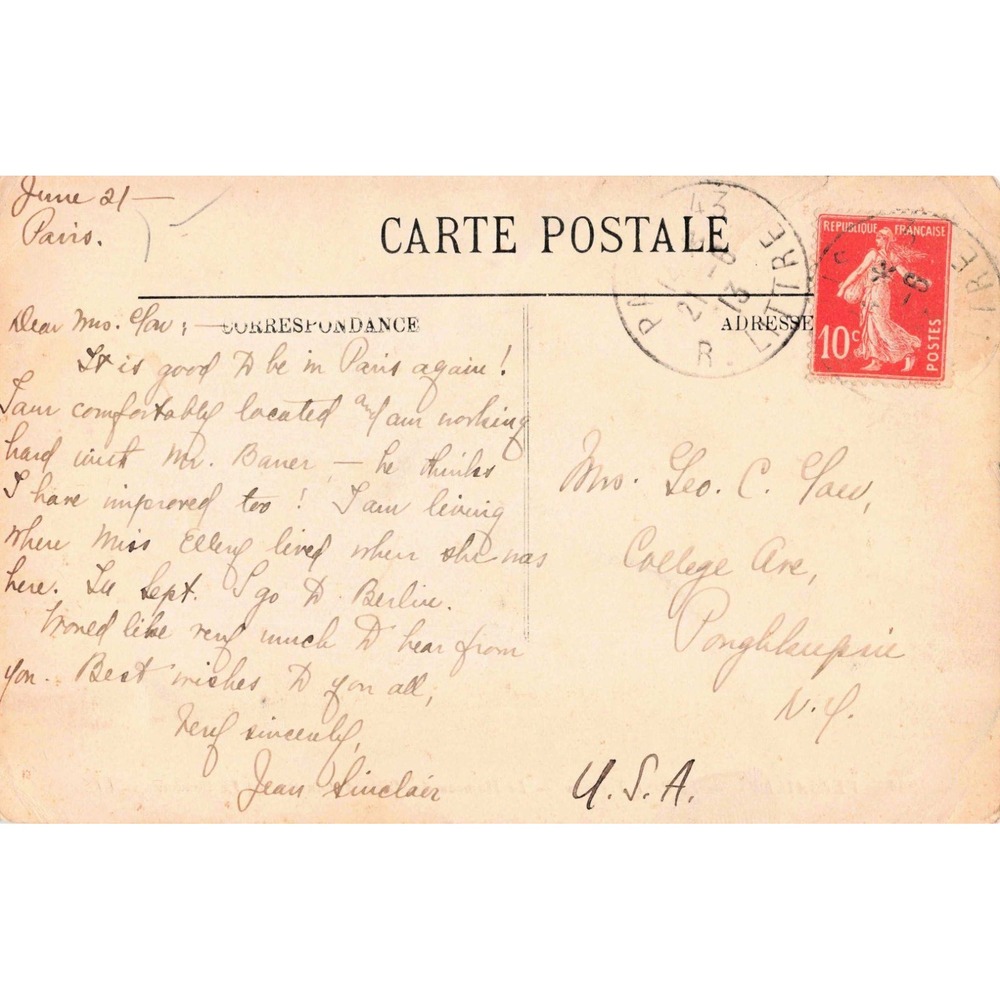 June 21 —
Paris.
CARTE POSTALE
CORRESPONDANCE
ADRESSE
Dear Mrs. Gow; —
It is good to be in Paris again!
I am comfortably located and am working
hard with Mr. Bauer — he thinks
I have improved too! I am living
where Miss Ellery lived when she was
here. In Sept. I go to Berlin.
Would like very much to hear from
you. Best wishes to you all,
Very sincerely,
Jean Sinclair
Mrs. Geo. C. Gow,
College Ave,
Poughkeepsie
N.Y.
U.S.A.
REPUBLIQUE FRANÇAISE
10c
POSTES
43
21 - 6
13
R. LITTRE